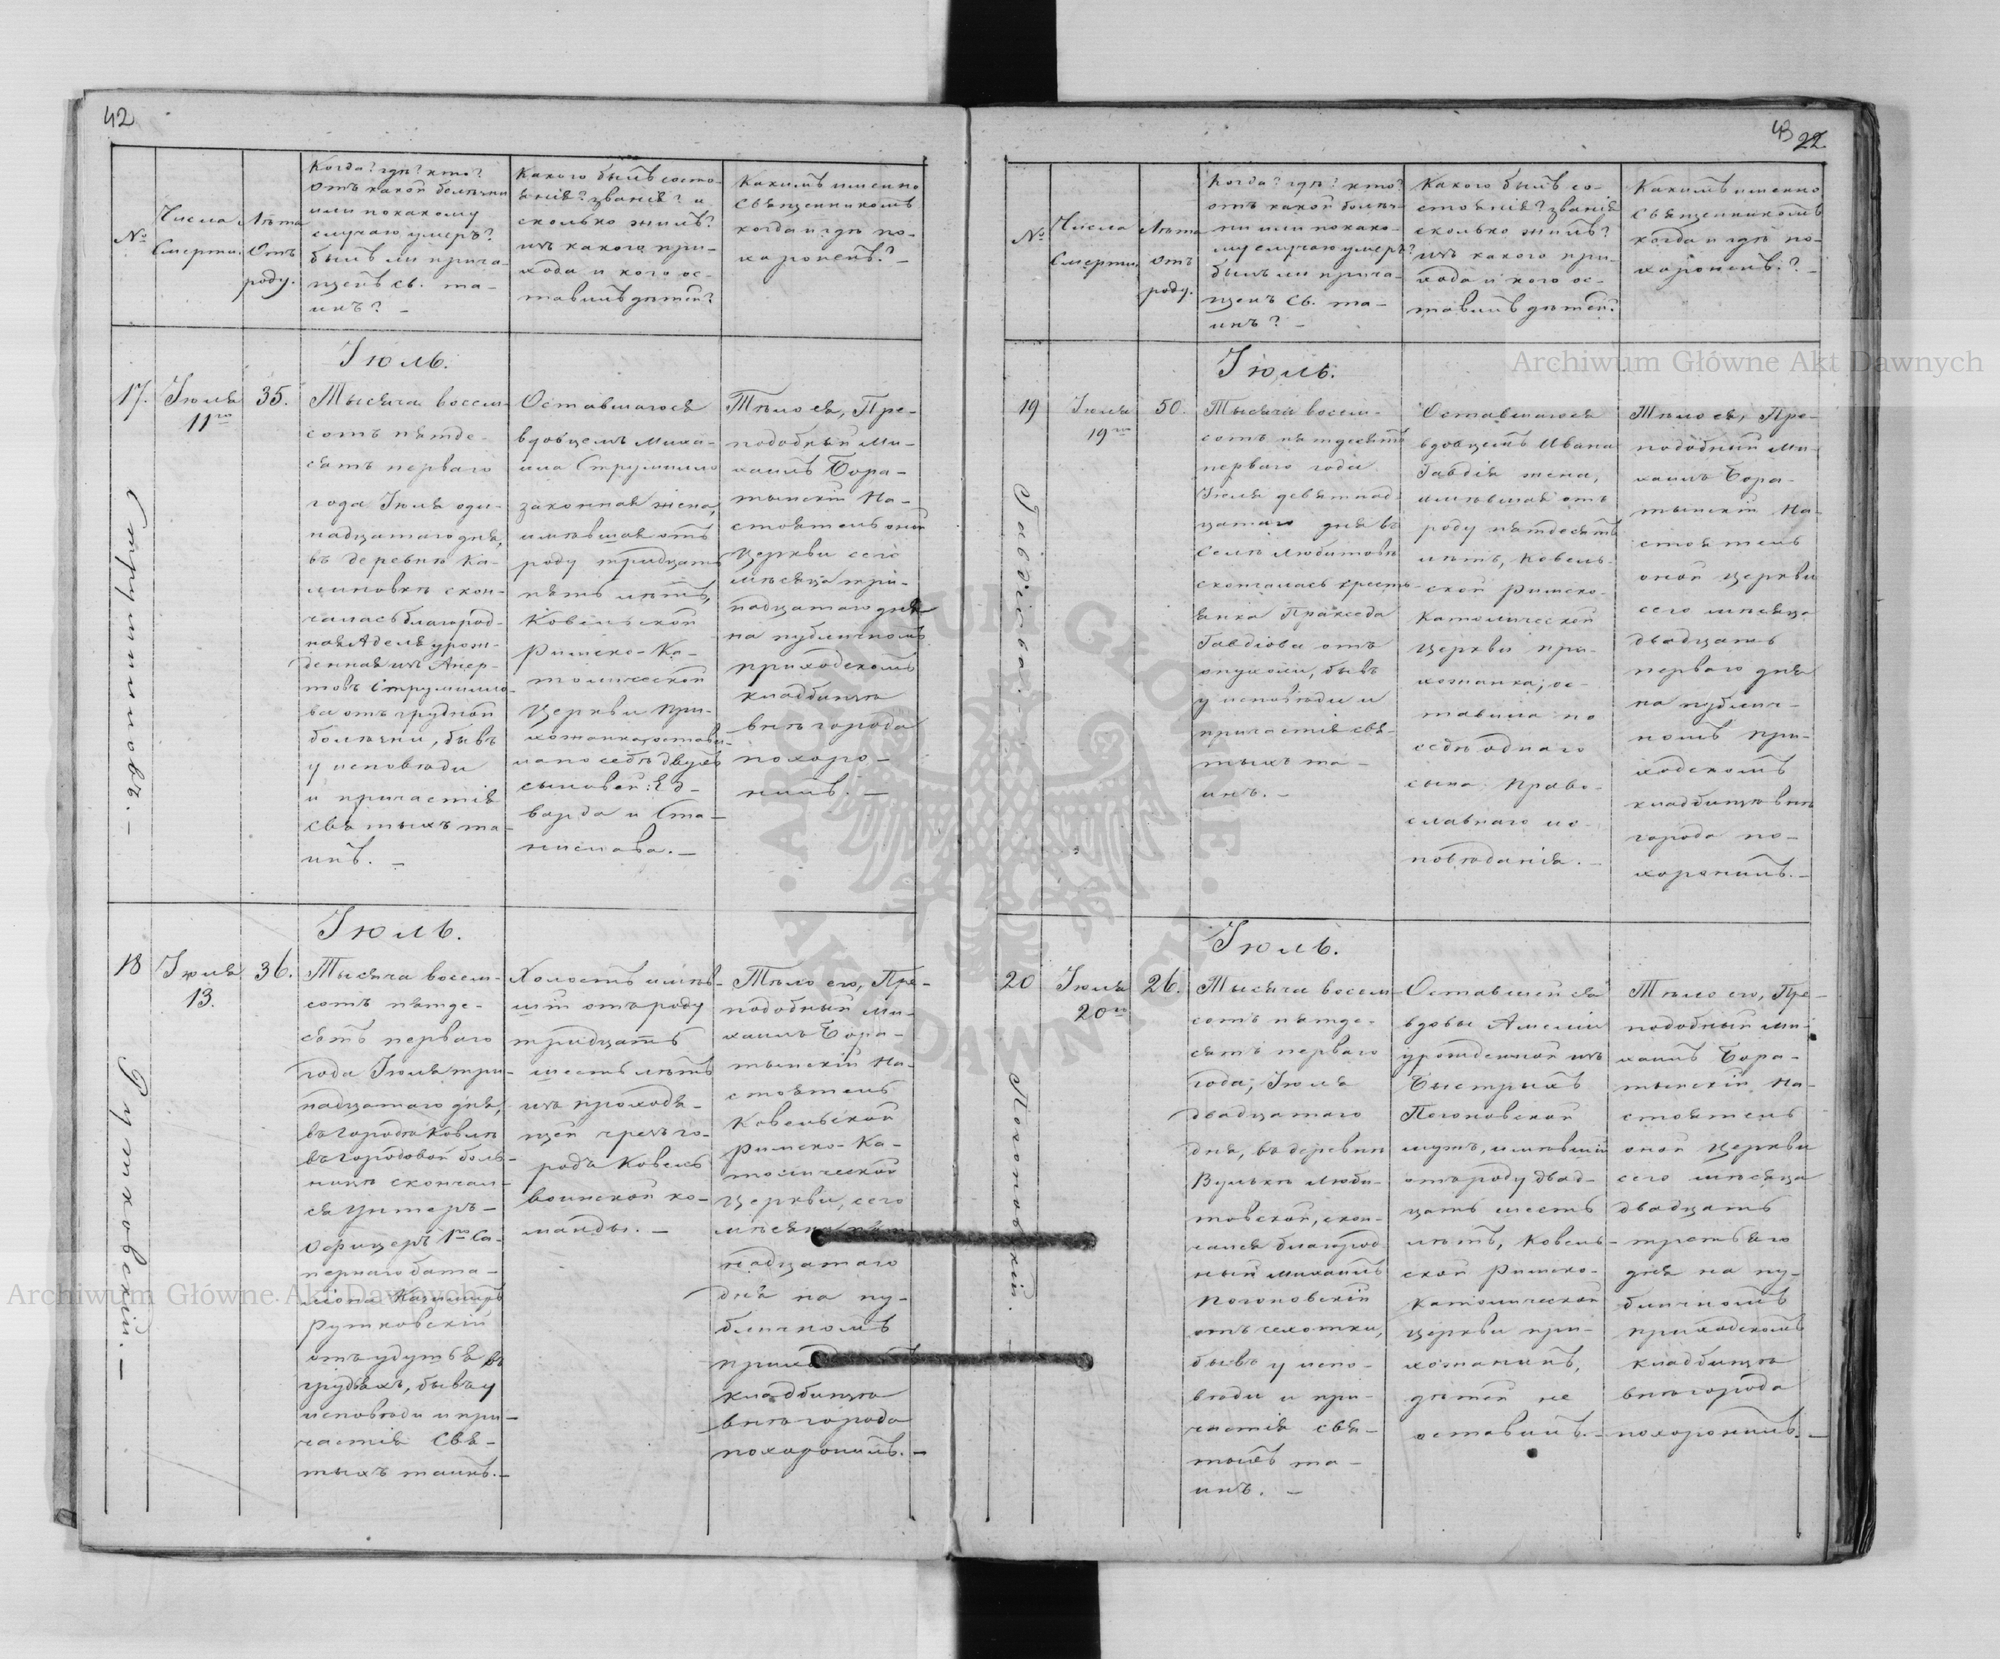 42
№
Числа
Смерти.
Лѣта
Отъ
роду.
Когда? гдѣ? кто?
Отъ какой болѣзни
или покакому
случаю умеръ?
былъ ли прича-
щенъ св. та-
инъ? -
Какого былъ состо-
янія? званія? и
сколько жилъ?
изъ какого при-
хода и кого ос-
тавилъ дѣтей?
Какимъ именно
Священникомъ
когда и гдѣ по-
хороненъ? -
17.
Струмиллова. -
Іюля
11го
35.
Іюль.
Тысяча восем-
сотъ пятде-
сятъ перваго
года Іюля оди-
надцатаго дня,
въ деревнѣ Ка-
линовкѣ скон-
чалась благород-
ная Аделя урож-
денная изъ
Струмилло-
ва отъ грудной
болѣзни, бывъ
у исповѣди
и причастія
Святыхъ та-
инъ. -
Оставшагося
вдовцемъ Миха-
ила Струмилло
законная жена,
имѣвшая отъ
роду тридцать
пять лѣтъ,
Ковельской
Римско-Ка-
толической
Церкви при-
хожанка, остави-
ла по себѣ двухъ
сыновей: Эд-
варда и Ста-
нислава. -
Тѣло ея, Пре-
подобный Ми-
хаилъ Бора-
тынскій На-
стоятель оной
Церкви сего
мѣсяца три-
надцатаго дня
на публичномъ
приходскомъ
кладбищѣ
внѣ города
похоро-
нилъ. -
18
Рутковскій. -
Іюля
13.
36.
Іюль.
Тысяча восем-
сотъ пятде-
сятъ перваго
года Іюля три-
надцатаго дня,
въ городѣ Ковлѣ
въ городовой боль-
ницѣ скончал-
ся Унтеръ-
Офицеръ 1го Са-
пернаго бата-
ліона Казимиръ
Рутковскій
отъ удушья въ
грудяхъ, бывъ у
исповѣди и при-
частія Свя-
тыхъ таинъ. -
Холостъ имѣв-
шій отъ роду
тридцать
шесть лѣтъ
изъ проходя-
щей чрезъ го-
родъ Ковель
воинской ко-
манды. -
Тѣло его, Пре-
подобный Ми-
хаилъ Бора-
тынскій На-
стоятель
Ковельской
Римско-Ка-
толической
Церкви, сего
мѣсяца
надцатаго
дня на пу-
бличномъ
кладбищѣ
внѣ города
похоронилъ. -
43 22.
№
Числа
Смерти.
Лѣта
отъ
роду.
Когда? гдѣ? кто?
отъ какой болѣз-
ни или покако-
му случаю умеръ?
былъ ли прича-
щенъ Св. та-
инъ? -
Какого былъ со-
стоянія? званія
сколько жилъ?
изъ какого при-
хода и кого ос-
тавилъ дѣтей?
Какимъ именно
Священникомъ
когда и гдѣ по-
хороненъ? -
19
Гавдіова. -
Іюля
19го
50.
Іюль.
Тысяча восем-
сотъ пятдесятъ
перваго года
Іюля девятнад-
цатаго дня въ
Селѣ Любитовѣ
скончалась кресть-
янка Праксeда
Гавдіова отъ
опухоли, бывъ
у исповѣди и
причастія свя-
тыхъ та-
инъ. -
Оставшагося
вдовцемъ Ивана
Гавдія жена,
имѣвшая отъ
роду пятдесятъ
лѣтъ, Ковель-
ской Римско-
Католической
Церкви при-
хожанка; ос-
тавила по
себѣ одного
сына Право-
славнаго ис-
повѣданія. -
Тѣло ея, Пре-
подобный Ми-
хаилъ Бора-
тынскій На-
стоятель
оной Церкви
сего мѣсяца
двадцать
перваго дня
на публич-
номъ при-
ходскомъ
кладбищѣ внѣ
города по-
хоронилъ. -
20
Погоновскій. -
Іюля
20го
26.
Іюль.
Тысяча восем-
сотъ пятде-
сятъ перваго
года, Іюля
двадцатаго
дня, въ деревни
Вулькѣ Люби-
товской, скон-
чался благород-
ный Михаилъ
Погоновскій
отъ чехотки,
бывъ у испо-
вѣди и при-
частія свя-
тыхъ та-
инъ. -
Оставшейся
вдовы Амеліи
урожденной изъ
Быстрыхъ
Погоновской
мужъ, имѣвшій
отъ роду двад-
цать шесть
лѣтъ, Ковель-
ской Римско-
Католической
Церкви при-
хожанинъ,
дѣтей не
оставилъ. -
Тѣло его, Пре-
подобный Ми-
хаилъ Бора-
тынскій На-
стоятель
оной Церкви
сего мѣсяца
двадцать
третьяго
дня на пу-
бличномъ
приходскомъ
кладбищѣ
внѣ города
похоронилъ. -
Archiwum Główne Akt Dawnych
Archiwum Główne Akt Dawnych
ARCHIWUM GŁÓWNE AKT DAWNYCH